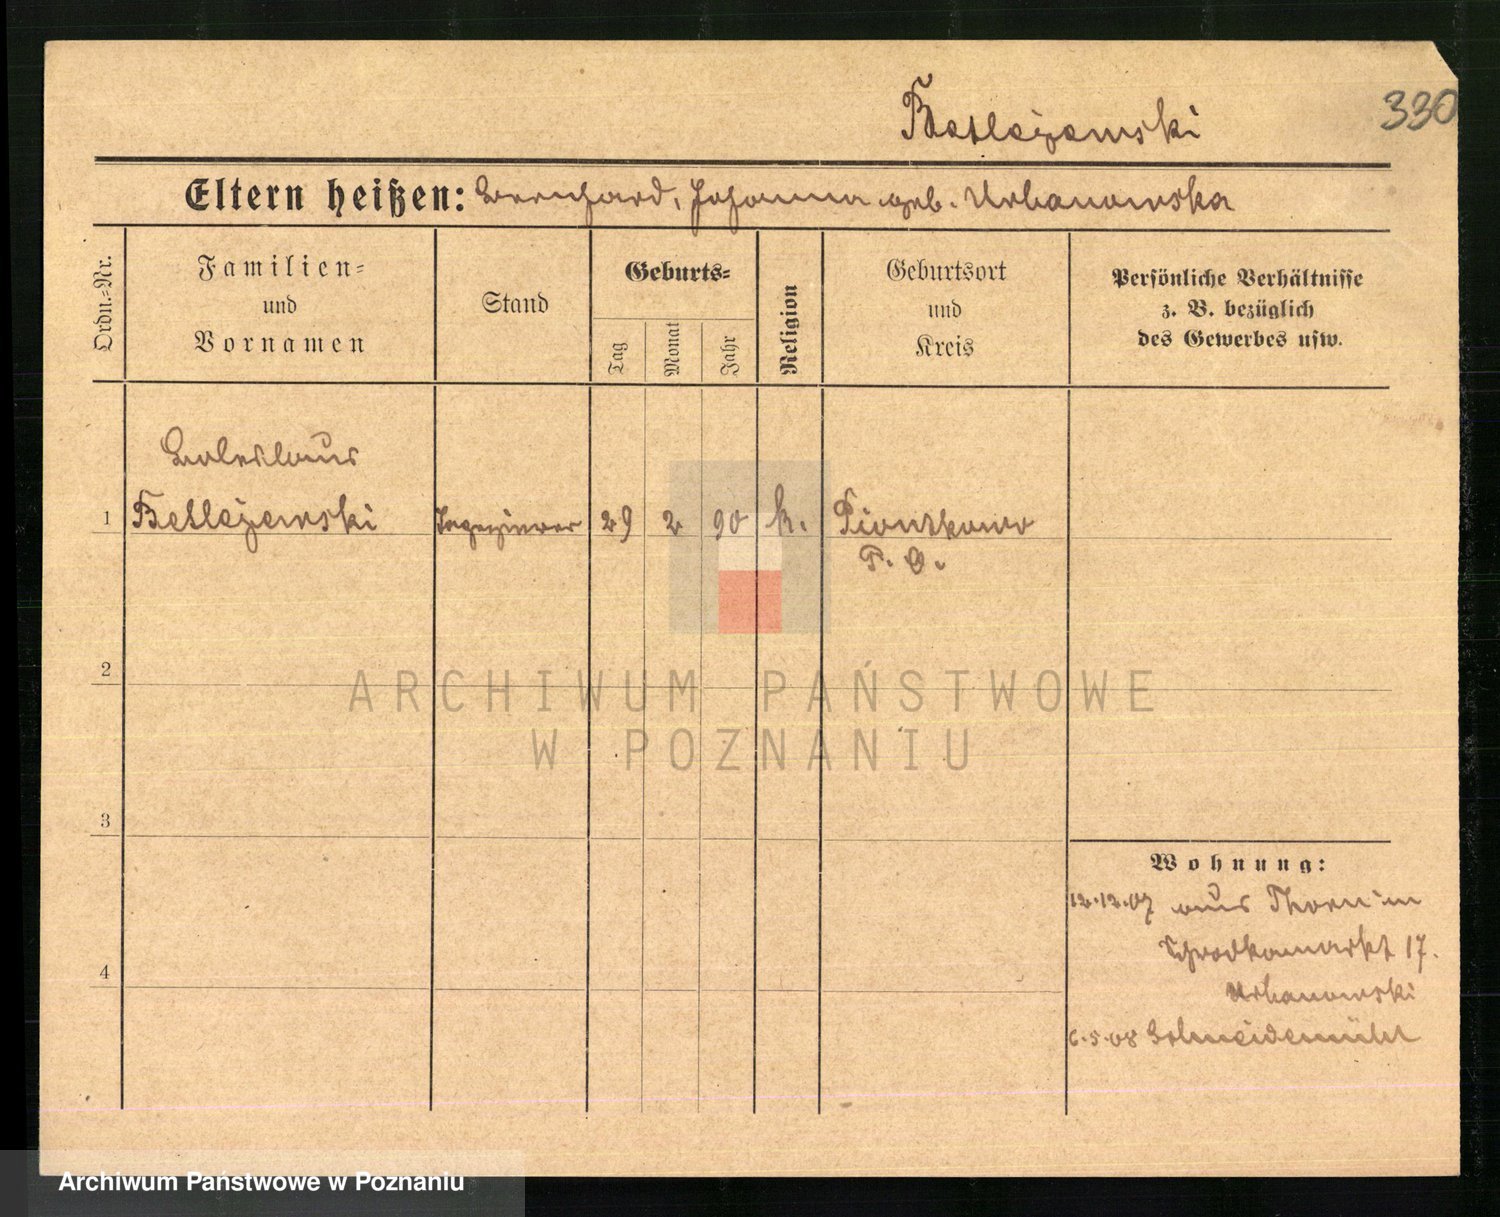 Betlejewski
330
Eltern heißen: Bernhard, Johanna geb. Urbanowska
Ordn.-Nr.
Familien-
und
Vornamen
Stand
Geburts-
Tag
Monat
Jahr
Religion
Geburtsort
und
Kreis
Persönliche Verhältnisse
z. B. bezüglich
des Gewerbes usw.
Boleslaus
1 Betlejewski 29 2 90 k. Piontkowo
P. O.
2
ARCHIWUM PAŃSTWOWE
W POZNANIU
3
Wohnung:
12.12.07 aus Thorn in
Schrodkamarkt 17.
Urbanowski
4
6.5.08 Schneidemühl
Archiwum Państwowe w Poznaniu